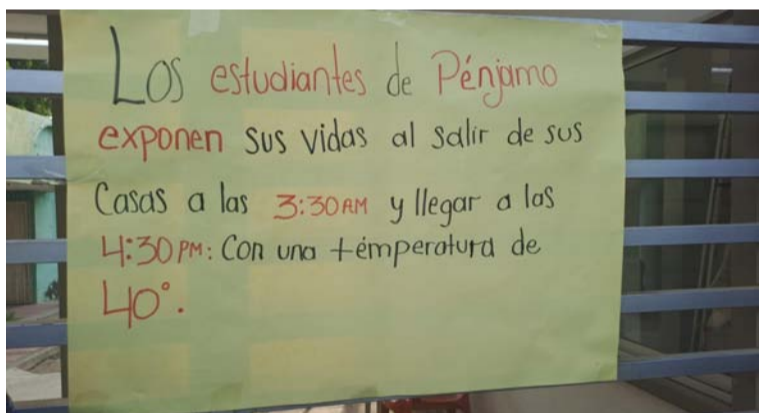 Los estudiantes de Pénjamo
exponen sus vidas al salir de sus
Casas a las 3:30AM y llegar a las
4:30PM: Con una témperatura de
40°.